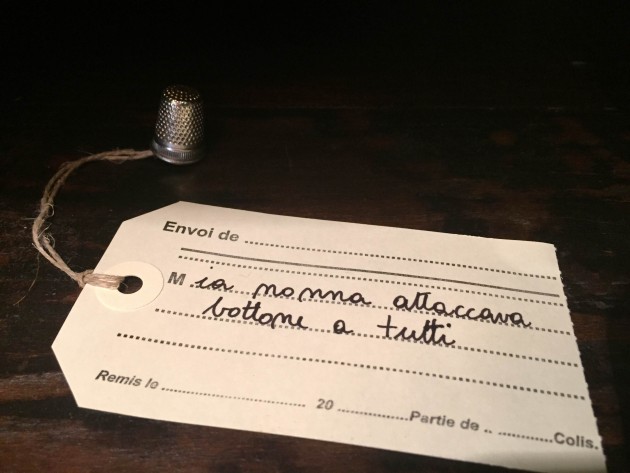 Envoi de
Mia nonna attaccava
bottone a tutti
Remis le 20 Partie de Colis.